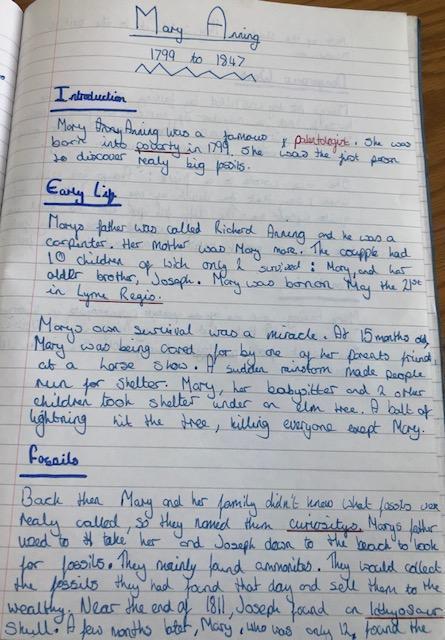 Mary Anning
1799 to 1847
Introduction
Mary Anning was a famous paleontologist. She was
born into poverty in 1799. She was the first person
to discover realy big fossils.
Early Life
Marys father was called Richard Anning and he was a
carpinter. Her mother was Mary more. The coupple had
10 children of wich only 2 survived: Mary, and her
older brother, Joseph. Mary was born on May the 21st
in Lyme Regis.
Marys own survival was a miracle. At 15 months old,
Mary was being cared for by one of her parents friends
at a horse show. A sudden rainstorm made people
run for shelter. Mary, her babysitter and 2 other
children took shelter under an elm tree. A bolt of
lightning hit the tree, killing everyone exept Mary.
Fossils
Back then Mary and her family didn't know what fossils were
realy called, so they named them curiositys. Marys father
used to take her and Joseph down to the beach to look
for fossils. They mainly found ammonites. They would collect
the fossils they had found that day and sell them to the
wealthy. Near the end of 1811, Joseph found an Icthyosaur
skull. A few months later, Mary, who was only 12, found the